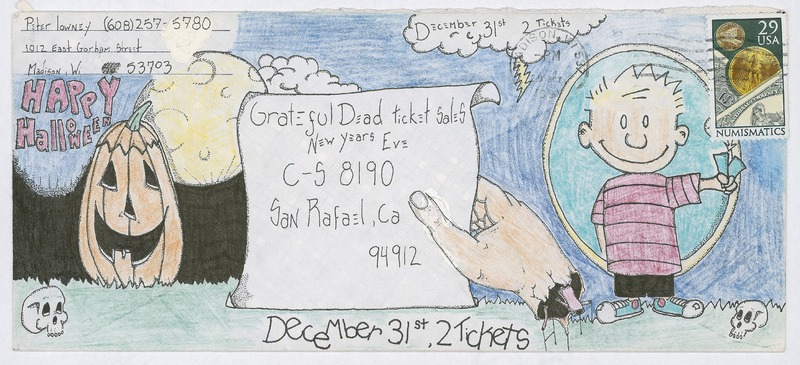 Peter Lowney (608)257-5780
1012 East Gorham Street
Madison, W. 53703
HAPPY
HallOWEEN
December 31st 2 Tickets
29
USA
NUMISMATICS
Grateful Dead ticket SaleS
New Years Eve
C-S 8190
San Rafael, Ca
94912
December 31st, 2 Tickets